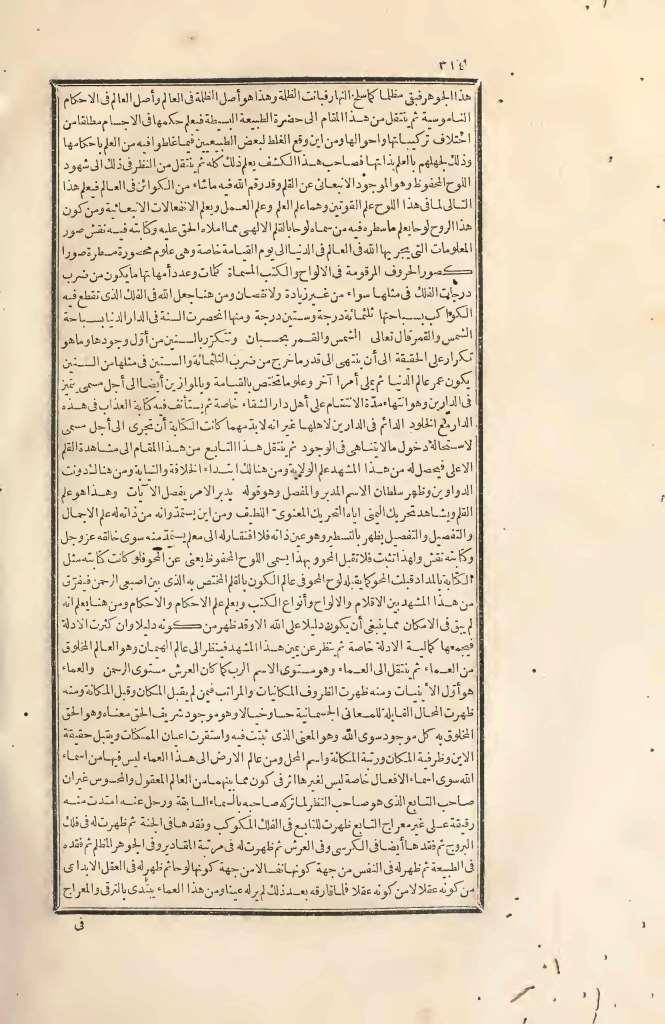 ٣١٤
هذا الجوهر فبقى مظلما كما سلخ النهار فبانت الظلمة وهذا هو أصل الظلمة فى العالم وأصل العالم فى الاحكام
الناموسية ثم ينتقل من هذا المقام الى حضرة الطبيعة البسيطة فيعلم حكمها فى الاجسام مطلقا من
اختلاف تركيباتها واحوالها ومن اين وقع الغلط لبعض الطبيعيين فيما غلطوا فيه من العلم باحكامها
وذلك لجهلهم بالعلم بذاتها فصاحب هذا الكشف يعلم ذلك كله ثم ينتقل من النظر فى ذلك الى شهود
اللوح المحفوظ وهو الموجود الانبعاثى عن القلم وقد رقم الله فيه ما شاء من الكوائن فى العالم فيعلم هذا
التالى لما فى هذا اللوح علم القوتين وهما علم العلم وعلم العمل ويعلم الانفعالات الانبعاثية ومن كون
هذا الروح لوحا يعلم ما سطره فيه من سماه لوحا بالقلم الالهى مما املاه الحق عليه وكتابته فيه نقش صور
المعلومات التى يجريها الله فى العالم فى الدنيا الى يوم القيامة خاصة وهى علوم محصورة مسطرة صورا
كصور الحروف المرقومة فى الالواح والكتب المسماة كلمات وعدد أمهاتها ما يكون من ضرب
درجات الفلك فى مثلها سواء من غير زيادة ولا نقصان ومن هنا جعل الله فى الفلك الذى تقطع فيه
الكواكب بسباحتها ثلثمائة درجة وستين درجة ومنها انحصرت السنة فى الدار الدنيا بسباحة
الشمس والقمر قال تعالى الشمس والقمر بحسبان وتتكرر بالسنين من أول وجودها وما هو
تكرار على الحقيقة الى أن ينتهى الى قدر ما خرج من ضرب الثلثمائة والستين فى مثلها من السنين
يكون عمر عالم الدنيا ثم يملى أمرا آخر وعلوما تختص بالقيامة وبالموازين أيضا الى أجل مسمى يتميز
فى الدارين وهو انتهاء مدة الانتقام على أهل دار الشقاء خاصة ثم يستأنف فيه كتابة العذاب فى هذه
الدار مع الخلود الدائم فى الدارين لاهلها غير انه لا بد مهما كانت الكتابة أن تجرى الى أجل مسمى
لاستحالة دخول ما لا يتناهى فى الوجود ثم ينتقل هذا التابع من هذا المقام الى مشاهدة القلم
الاعلى فيحصل له من هذا المشهد علم الولاية ومن هنالك ابتداء الخلافة والنيابة ومن هنا دونت
الدواوين وظهر سلطان الاسم المدبر والمفصل وهو قوله يدبر الامر يفصل الآيات وهذا هو علم
القلم ويشاهد تحريك اليمنى اياه التحريك المعنوى اللطيف ومن اين يستمد وانه من ذاته له علم الاجمال
والتفصيل والتفصيل يظهر بالتسطير وهو عين ذاته فلا افتقار له الى معلم يستمد منه سوى خالقه عز وجل
وكتابته نقش ولهذا تثبت فلا تقبل المحو وبهذا يسمى اللوح المحفوظ يعنى عن المحو فلو كانت كتابته مثل
الكتابة بالمداد قبلت المحو كما يقبله لوح المحو فى عالم الكون بالقلم المختص به الذى بين اصبعى الرحمن فيفرق
من هذا المشهد بين الاقلام والالواح وأنواع الكتب ويعلم علم الاحكام والاحكام ومن هنا يعلم انه
لم يبق فى الامكان مما ينبغى أن يكون دليلا على الله الا وقد ظهر من كونه دليلا وان كثرت الادلة
فيجمعها كمالية الادلة خاصة ثم ينظر عن يمين هذا المشهد فينظر الى عالم الهيمان وهو العالم المخلوق
من العماء ثم ينتقل الى العماء وهو مستوى الاسم الرب كما كان العرش مستوى الرحمن والعماء
هو أول الأينيات ومنه ظهرت الظروف المكانيات والمراتب فيمن لم يقبل المكان وقبل المكانة ومنه
ظهرت المحال القابلة للمعانى الجسمانية حسا وخيالا وهو موجود شريف الحق معناه وهو الحق
المخلوق به كل موجود سوى الله وهو المعنى الذى ثبتت فيه واستقرت اعيان الممكنات ويقبل حقيقة
الاين وظرفية المكان ورتبة المكانة واسم المحل ومن عالم الارض الى هذا العماء ليس فيها من اسماء
الله سوى اسماء الافعال خاصة ليس لغيرها اثر فى كون مما بينهما من العالم المعقول والمحسوس غير ان
صاحب التابع الذى هو صاحب النظر لما تركه صاحبه بالسماء السابقة ورحل عنه امتدت منه
رقيقة على غير معراج التابع ظهرت للتابع فى الفلك المكوكب وفقدها فى الجنة ثم ظهرت له فى فلك
البروج ثم فقدها أيضا فى الكرسى وفى العرش ثم ظهرت له فى مرتبة المقادير وفى الجوهر المظلم ثم فقده
فى الطبيعة ثم ظهر له فى النفس من جهة كونها نفسا لا من جهة كونها لوحا ثم ظهر له فى العقل الابداعى
من كونه عقلا لا من كونه عقلا فلما فارقه بعد ذلك لم ير له عينا ومن هذا العماء يبتدى بالترقى والمعراج
فى